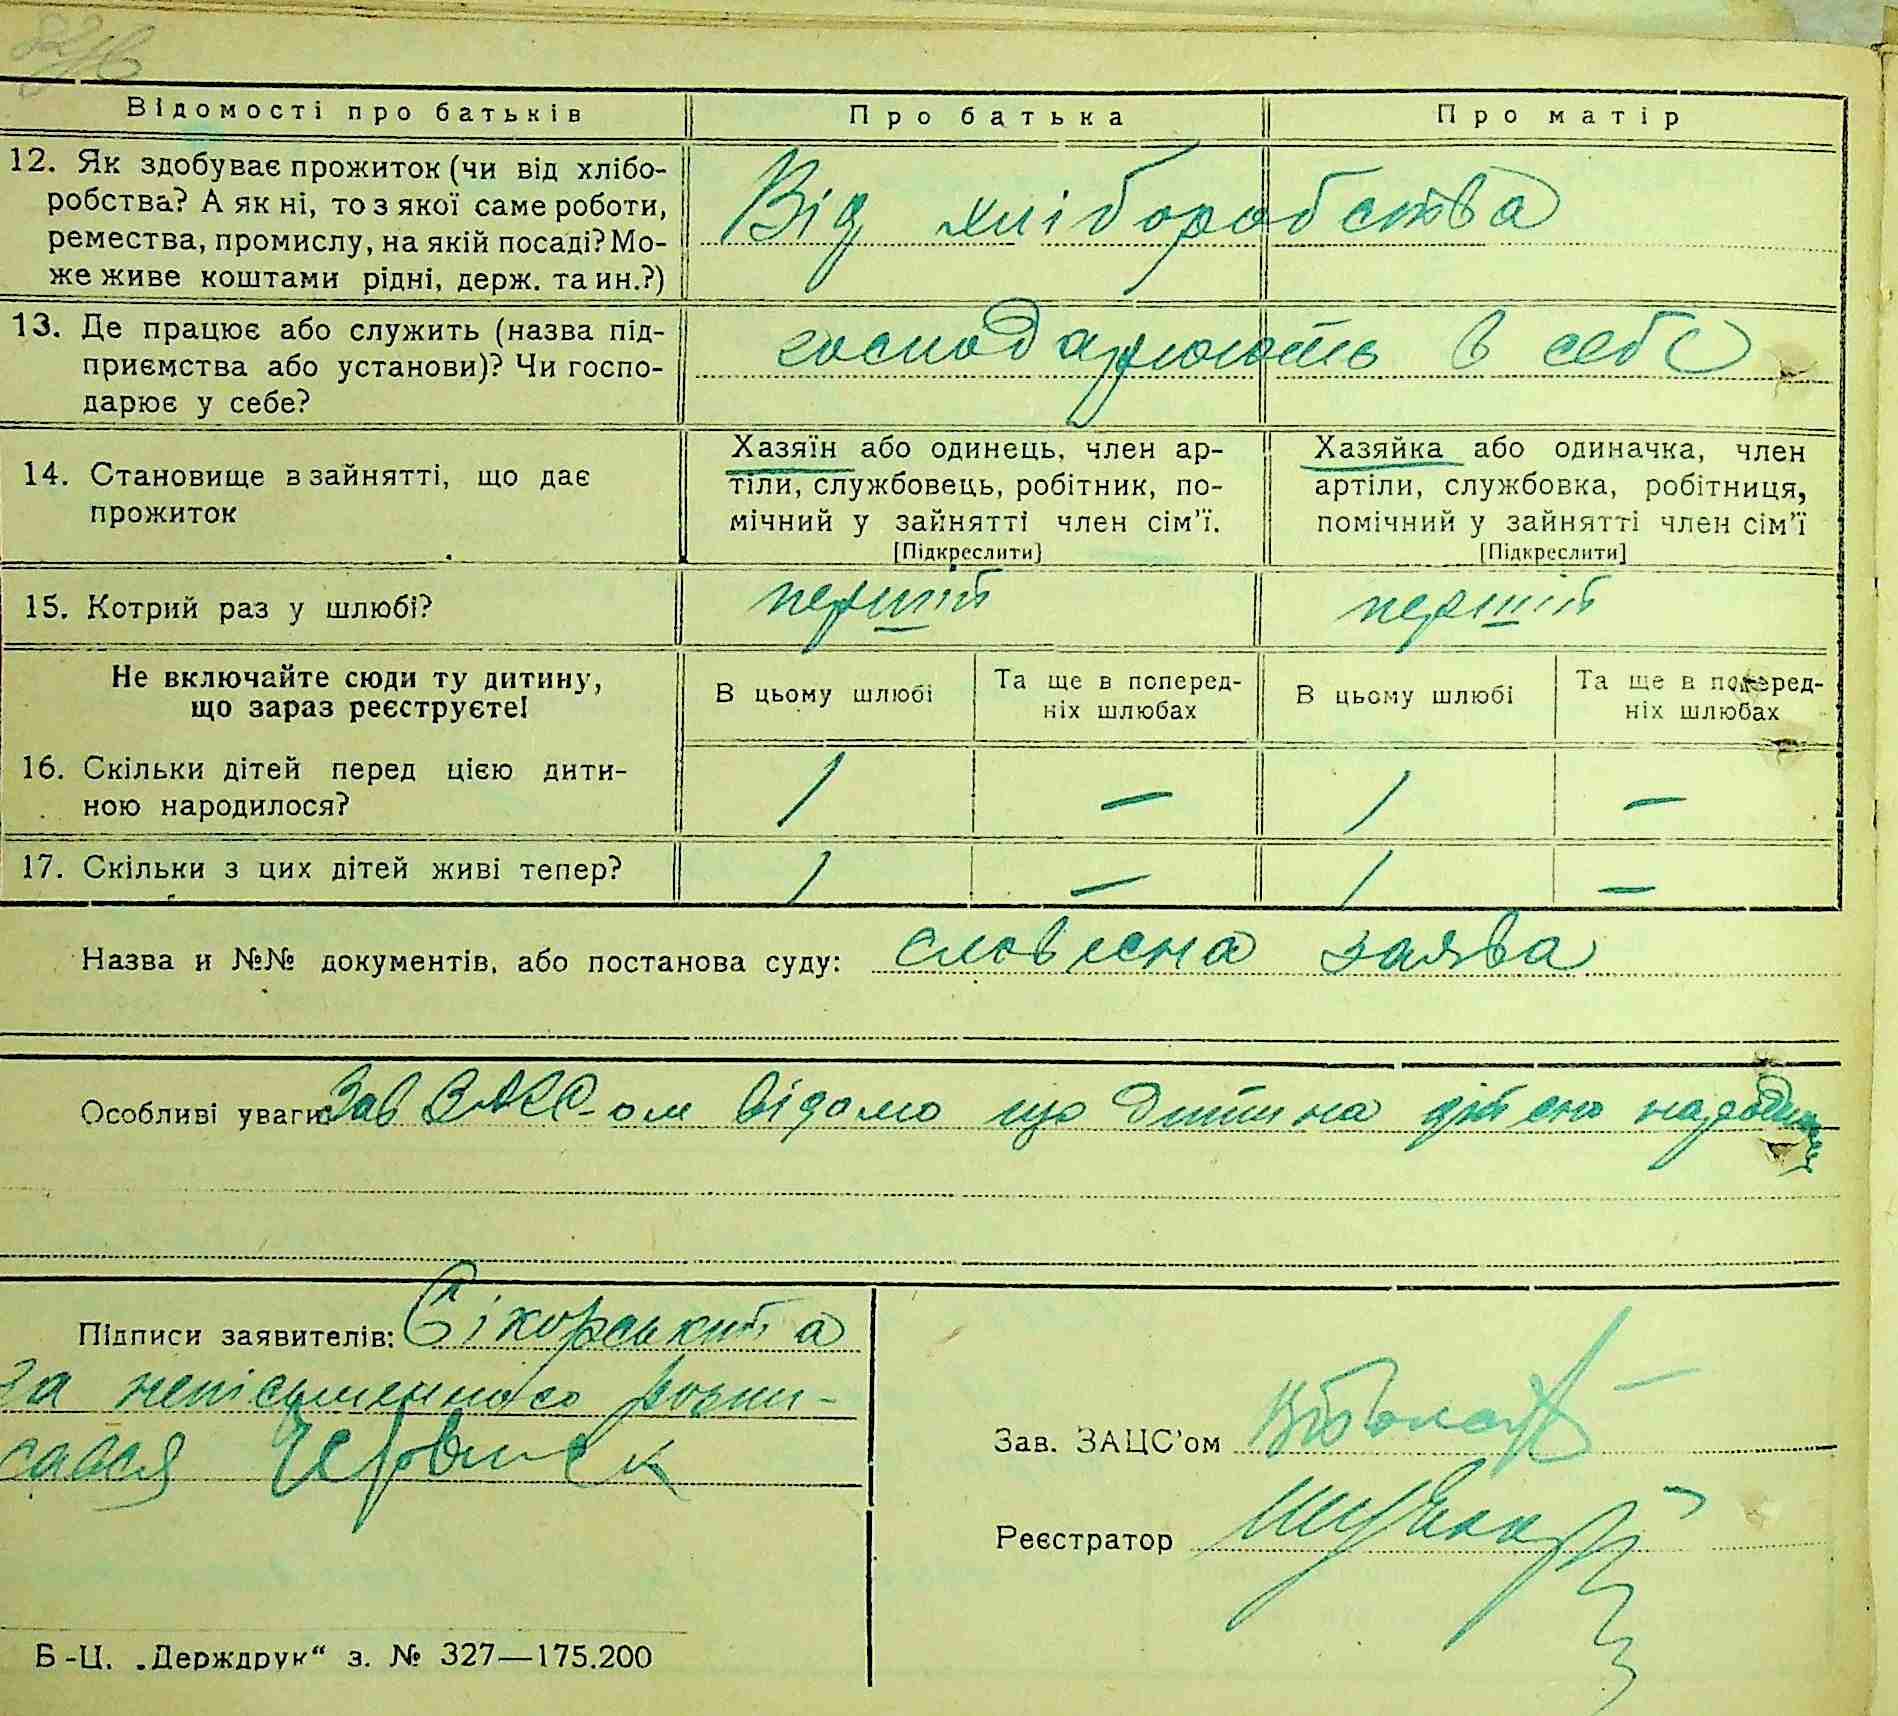 Відомості про батьків Про батька Про матір
12. Як здобуває прожиток (чи від хлібо-
робства? А як ні, то з якої саме роботи,
ремества, промислу, на якій посаді? Мо-
же живе коштами рідні, держ. та ин.?)
Від хліборобства
13. Де працює або служить (назва під-
приємства або установи)? Чи госпо-
дарює у себе?
господарюють в себе
14. Становище в зайнятті, що дає
прожиток
Хазяїн або одинець, член ар-
тіли, службовець, робітник, по-
мічний у зайнятті член сім’ї.
[Підкреслити]
Хазяйка або одиначка, член
артіли, службовка, робітниця,
помічний у зайнятті член сім’ї
[Підкреслити]
15. Котрий раз у шлюбі? перший перший
Не включайте сюди ту дитину,
що зараз реєструєте!
В цьому шлюбі
Та ще в поперед-
ніх шлюбах
В цьому шлюбі
Та ще в поперед-
ніх шлюбах
16. Скільки дітей перед цією дити-
ною народилося?
1 — 1 —
17. Скільки з цих дітей живі тепер? 1 — 1 —
Назва и №№ документів, або постанова суду: словесна заява
Особливі уваги: Зав ЗАГС-ом відомо що дитина дійсно
Підписи заявителів: Сікорський а
за неписьменного розпи-
сався Червінск
Зав. ЗАЦС’ом
Реєстратор
Б-Ц. „Держдрук“ з. № 327—175.200